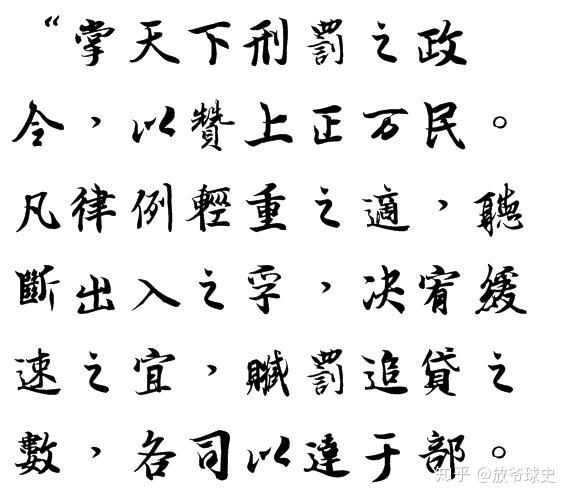 “掌天下刑罰之政
令，以贊上正万民。
凡律例輕重之適，聽
斷出入之孚，决宥緩
速之宜，贓罰追貸之
數，各司以達于部。
知乎 @放爷球史